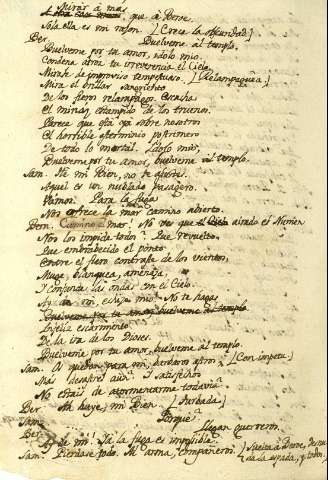 Mirár á mas
que á Berene.
Sola ella es mi razon. (Crece la obscuridad)
Ber. Buelveme al templo,
Buelveme por tu amor, idolo mio.
Condena atróz tu irreverencia el Cielo
Mirale de improviso tempestuoso. (Relampaguea)
Mira el brillar sangriento
De los fieros relampagos. Escucha
El estampido de los truenos.
Parece que oÿ sobre nosotros
El horrible esterminio postrimero
De todo lo mortal. Idolo mio,
Buelveme por tu amor, buelveme al templo.
Sam. No mi Bien, no te asustes.
Aquel es un nublado pasagero.
Vamos. Para la fuga
Nos ofrece la mar camino abierto.
Ber. Camino el mar! No ves que airado el Numen
Nos los impide todos? Que rebuelto,
Que embrabecido el ponto
Entre el fiero contraste de los vientos,
Muge, blanquea, amenaza,
Y confunde las ondas con el Cielo.
Ay de mi, idolo mio. No te hagas
Buelveme por tu amor, buelveme al templo
Infeliz escarmiento
De la ira de los Dioses.
Buelveme por tu amor, buelveme al templo.
Sam. O quedan para mi, barbaros astros, (Con impetu)
Mas desastres aun? Y satisfechos
No estais de atormentarme todavia?
Ber. Ah huye, mi Bien. (Turbada)
Sam. Porque?
Ber. Llegan guerreros.
Ay de mi! Ya la fuga es imposible.
Sam. Pierdase todo. Al arma, compañeros. (Suelta á Berene, desnuda la espada, y todos.